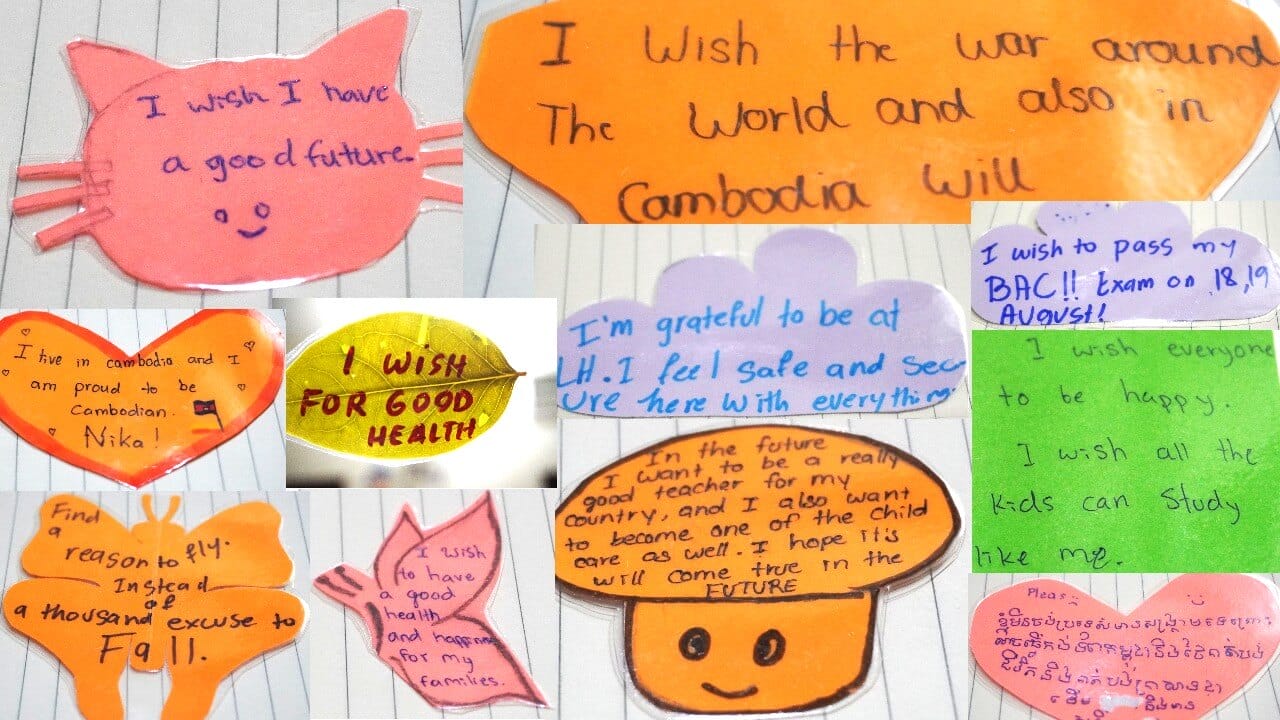 I wish I have
a good future.
I Wish the war around
The World and also in
Cambodia Will
I wish to pass my
BAC!! Exam on 18,19
AUGUST!
I'm grateful to be at
LH. I feel safe and sec
ure here with everything
I live in cambodia and I
am proud to be
Cambodian.
Nika!
I WISH
FOR GOOD
HEALTH
I wish everyone
to be happy.
I wish all the
kids can study
like me.
Find
a
reason to fly.
Instead
of
a thousand excuse to
Fall.
I wish
to have
a good
health
and happiness
for my
families.
In the future
I want to be a really
good teacher for my
country, and I also want
to become one of the child
care as well. I hope it's
will come true in the
FUTURE
Please